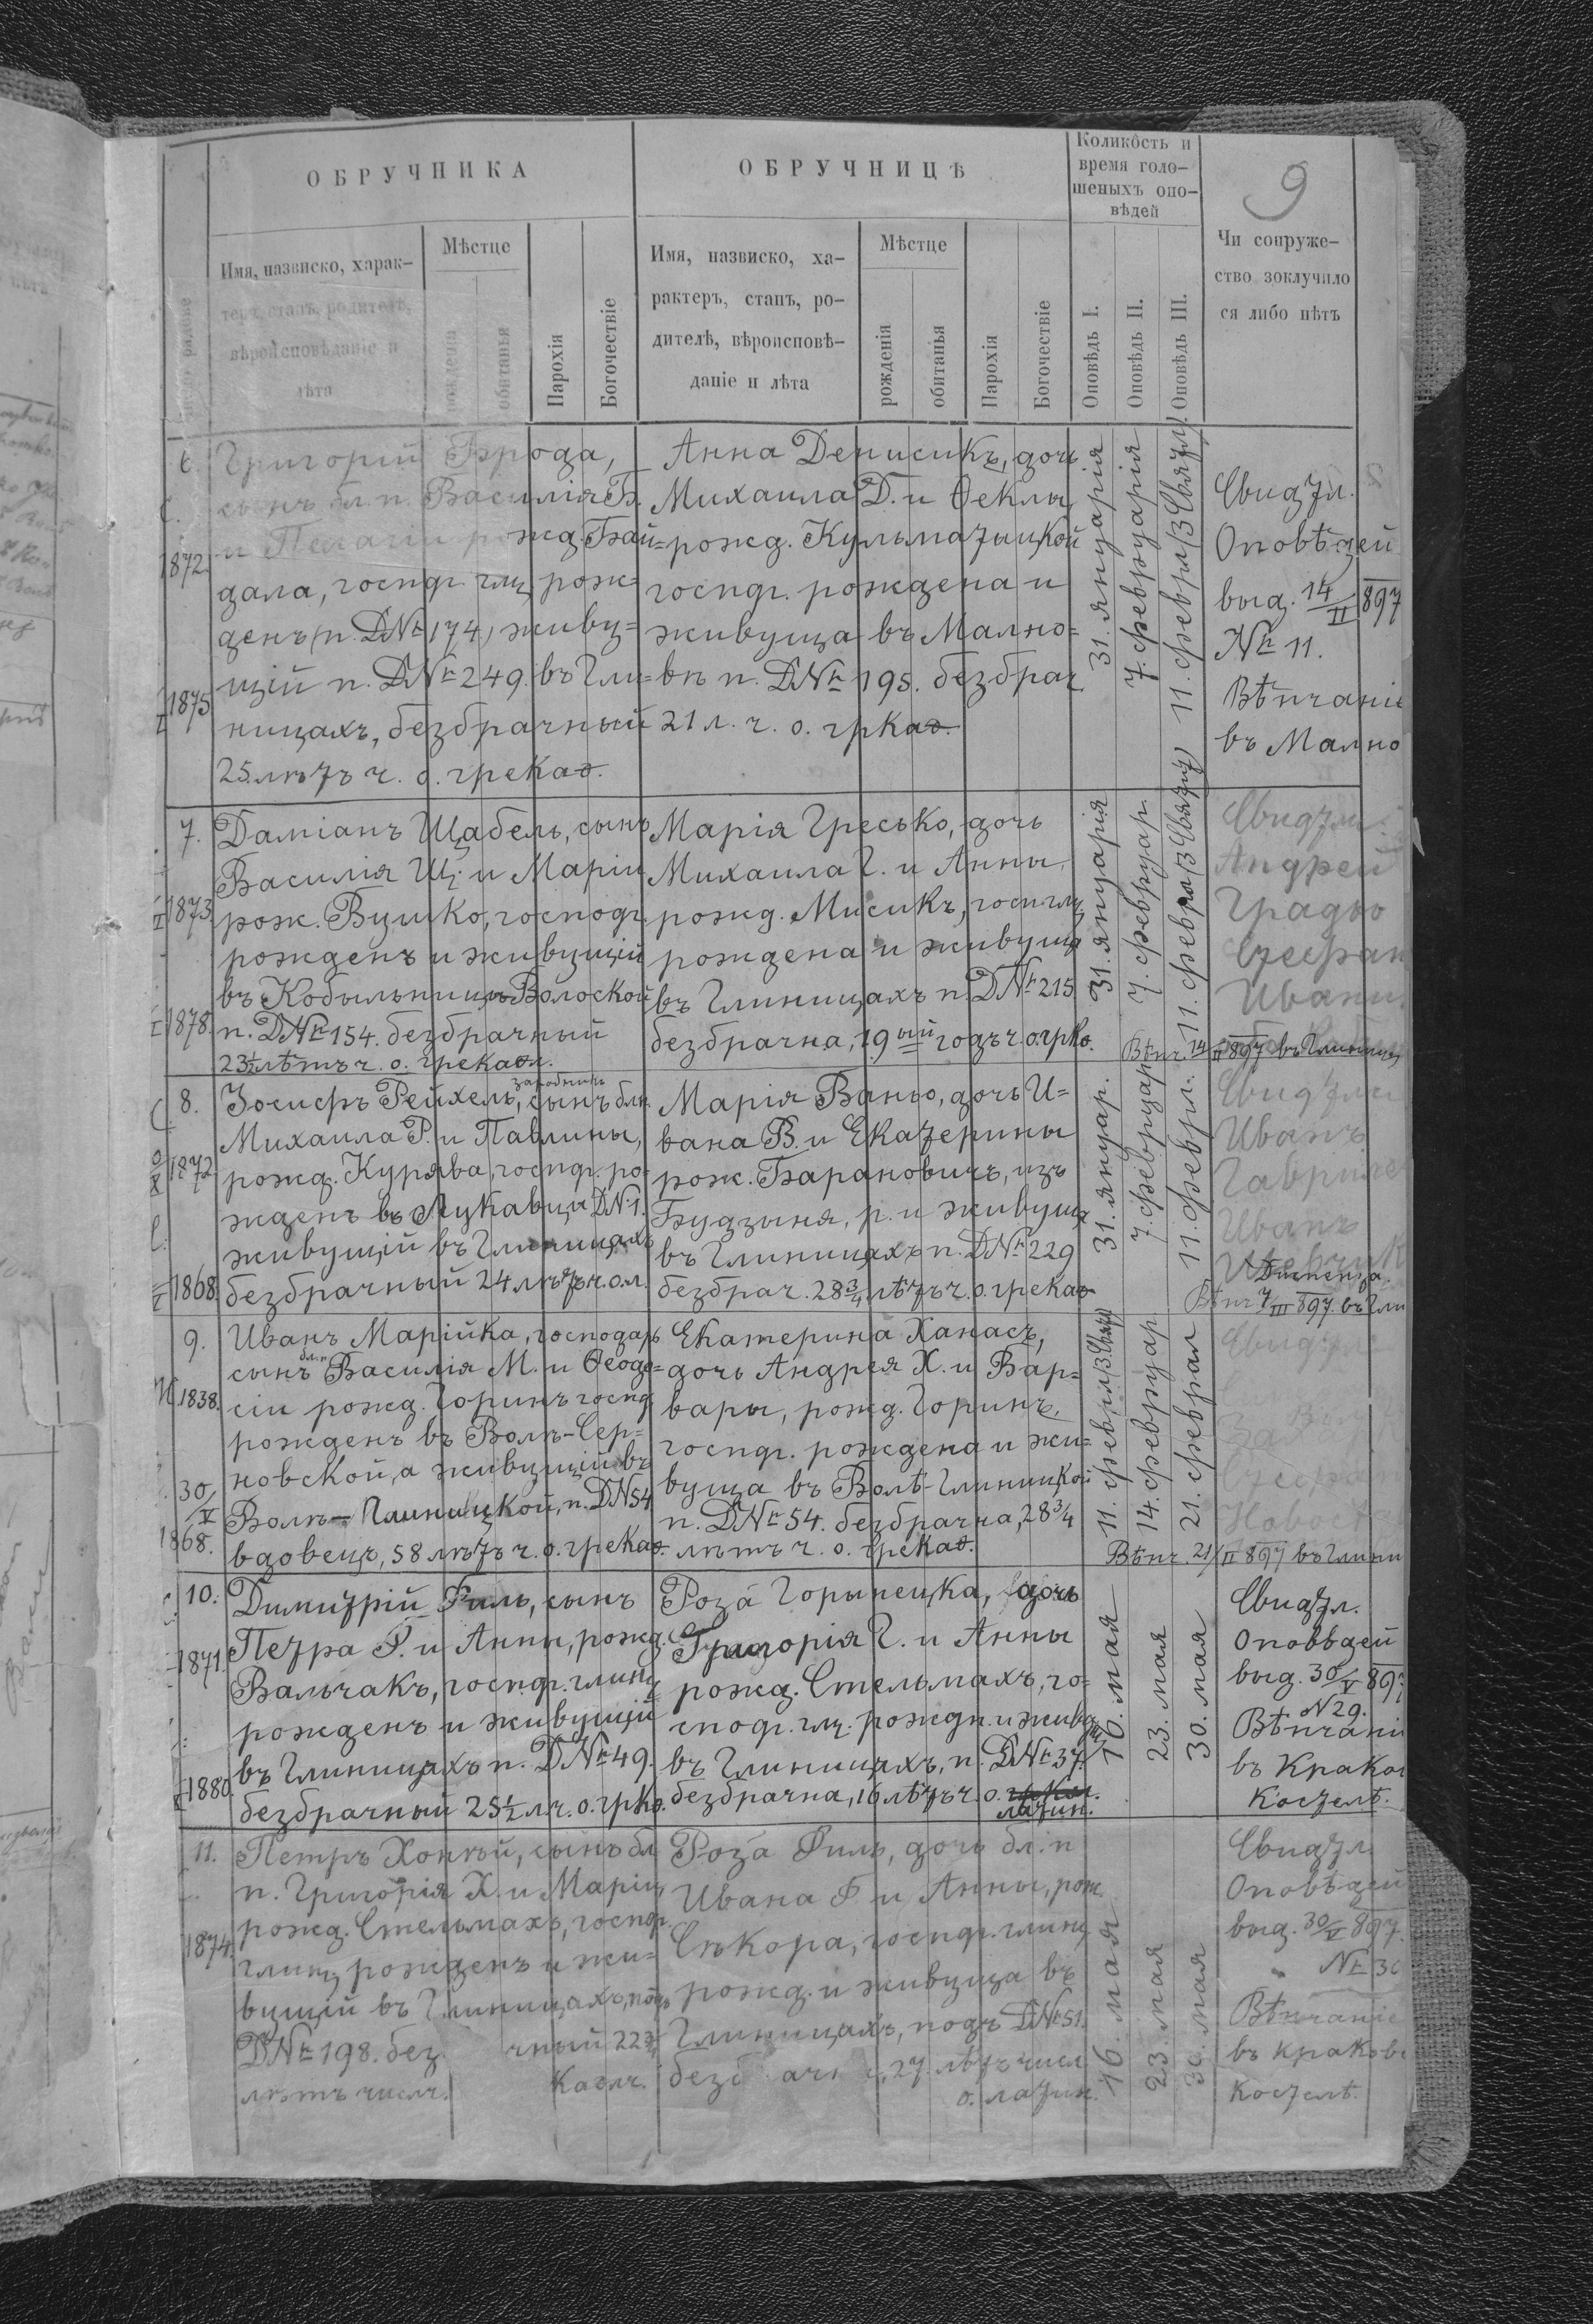 9
ОБРУЧНИКА
ОБРУЧНИЦѢ
Коликôсть и
время голо-
шеныхъ опо-
вѣдей
Чи сопруже-
ство зоклучило
ся либо нѣтъ
Имя, назвиско, харак-
теръ, станъ, родителѣ,
вѣроисповѣданіе и
лѣта
Мѣстце
рожденія
обитанья
Парохія
Богочествіе
Имя, назвиско, ха-
рактеръ, станъ, ро-
дителѣ, вѣроисповѣ-
даніе и лѣта
Мѣстце
рожденія
обитанья
Парохія
Богочествіе
Оповѣдь I.
Оповѣдь II.
Оповѣдь III.
6.
1872
1875
Григорій Брода,
сынъ бл. п. Василія Б.
и Пелагіи рожд. Бай=
дала, господ. глц рож=
денъ (п. DNr 174) живу=
щій п. DNr 249. въ Гли=
ницахъ, безбрачный
25 лѣтъ ч. о. грекаѳ.
Анна Денисикъ, дочь
Михаила Д. и Ѳеклы
рожд. Кульматицкой
господ. рождена и
живуща въ Мално=
вѣ п. DNr 195. безбрач
21 л. ч. о. гркаѳ.
31. януарія
7. февруарія
11. февра (3 Святы)
Свидтл.
Оповѣдей
выд. 14/II 897
Nr 11.
Вѣнчаніе
въ Мално
7.
1873
1878.
Даміанъ Щабель, сынъ
Василія Щ. и Маріи
рож. Вушко, господ.
рожденъ и живущій
въ Кобыльници Волоской
п. DNr 154. безбрачный
23½ лѣтъ ч. о. грекаѳл.
Марія Гресько, дочь
Михаила Г. и Анны,
рожд. Мисикъ, госп. глц
рождена и живуща
въ Глиницахъ п. DNr 215
безбрачна, 19ый годъ ч. о. грк.
31. януарія
7. февруар.
11. февра (3 Святы)
Свидтли
Андрей
Градьо
Стефан
Ивани
Вѣнч. 14/II 897 въ Глиницах
8.
1872
1868.
Іосифъ Рейхель, сынъ блж.
заробникъ
Михаила Р. и Павлины,
рожд. Курява, господ. ро-
жденъ въ Лукавци DN 1.
живущій въ Глиницахъ
безбрачный 24 лѣтъ ч. о. л.
Марія Ваньо, дочь И=
вана В. и Екатерины
рож. Барановичъ, изъ
Будзыня, р. и живуща
въ Глиницахъ п. DNr 229
безбрач. 28¾ лѣтъ ч. о. грекаѳ
31. януар.
7. февруар
11. феврл.
Свидтли
Иванъ
Гаврилеч
Иванъ
Диспенза.
Вѣнч 7/III 897. въ Гли
9.
1838.
30/V
1868.
Иванъ Марійка, господарь
сынъ бл.п Василія М. и Ѳеодо=
сіи рожд. Горинъ господ
рожденъ въ Воли-Сер=
новской, а живущій въ
Воли-Глиницкой, п. DN 54
вдовецъ, 58 лѣтъ ч. о. грекаѳ.
Екатерина Ханасъ,
дочь Андрея Х. и Вар=
вары, рожд. Горинъ,
господ. рождена и жи=
вуща въ Волѣ-Глиницкой
п. DNr 54. безбрачна, 28¾
лѣтъ ч. о. грекаѳ.
11. феврл (3 Свят)
14. февруар
21. феврал
Свидтл
Стефан
Вѣнч. 21/II 897 въ Глини
10.
1871.
1880
Димитрій Филь, сынъ
Петра Ф. и Анны, рожд.
Вальчакъ, господ. глиниц
рожденъ и живущій
въ Глиницахъ п. DNr 49.
безбрачный 25½ л. ч. о. грк.
Роза Горынецка, дочь
Григорія Г. и Анны
рожд. Стельмахъ, го=
спод. глц. рождн. и живущ
въ Глиницахъ, п. DNr 37.
безбрачна, 16 лѣтъ ч. о.
латин.
16. мая
23. мая
30. мая
Свидтл.
Оповѣдей
выд. 30/V 897
N 29.
Вѣнчаніе
въ Краков
Костелѣ.
11.
1874.
Петръ Хонкѣй, сынъ бл
п. Григорія Х. и Маріи,
рожд. Стельмахъ, господ
глиниц рожденъ и жи=
вущій въ Глиницахъ, подъ
DNr 198. без чный 22¾
лѣтъ числ. каѳлч.
Роза Филь, дочь бл. п
Ивана Ф. и Анны, рож.
Сѣкора, господ. глиниц
рожд. и живуща въ
Глиницахъ, подъ DNr 51.
безб ачн 27. лѣтъ числ
о. латин.
16. мая
23. мая
30. мая
Свидтл
Оповѣдей
выд. 30/V 897.
Nr 30
Вѣнчаніе
въ краковс
Костелѣ.